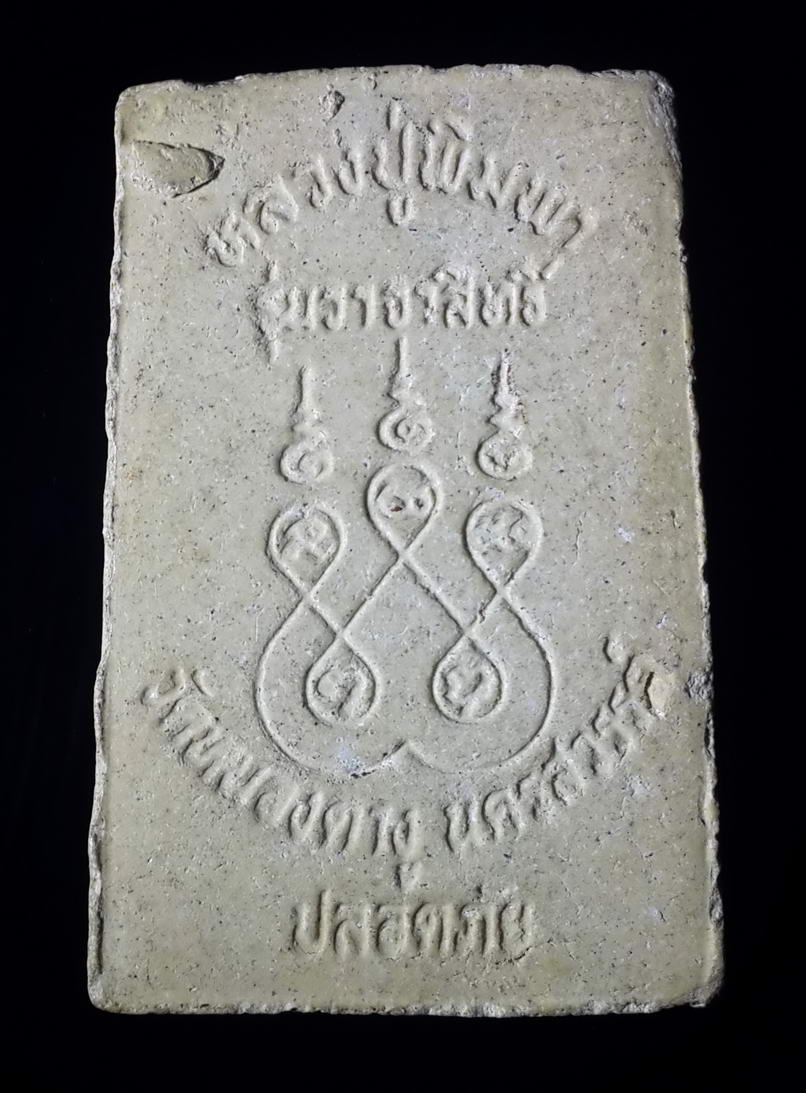 หลวงปู่พิมพา
รุ่นวาจาสิทธิ์
วัดหนองตางู นครสวรรค์
ปลอดภัย